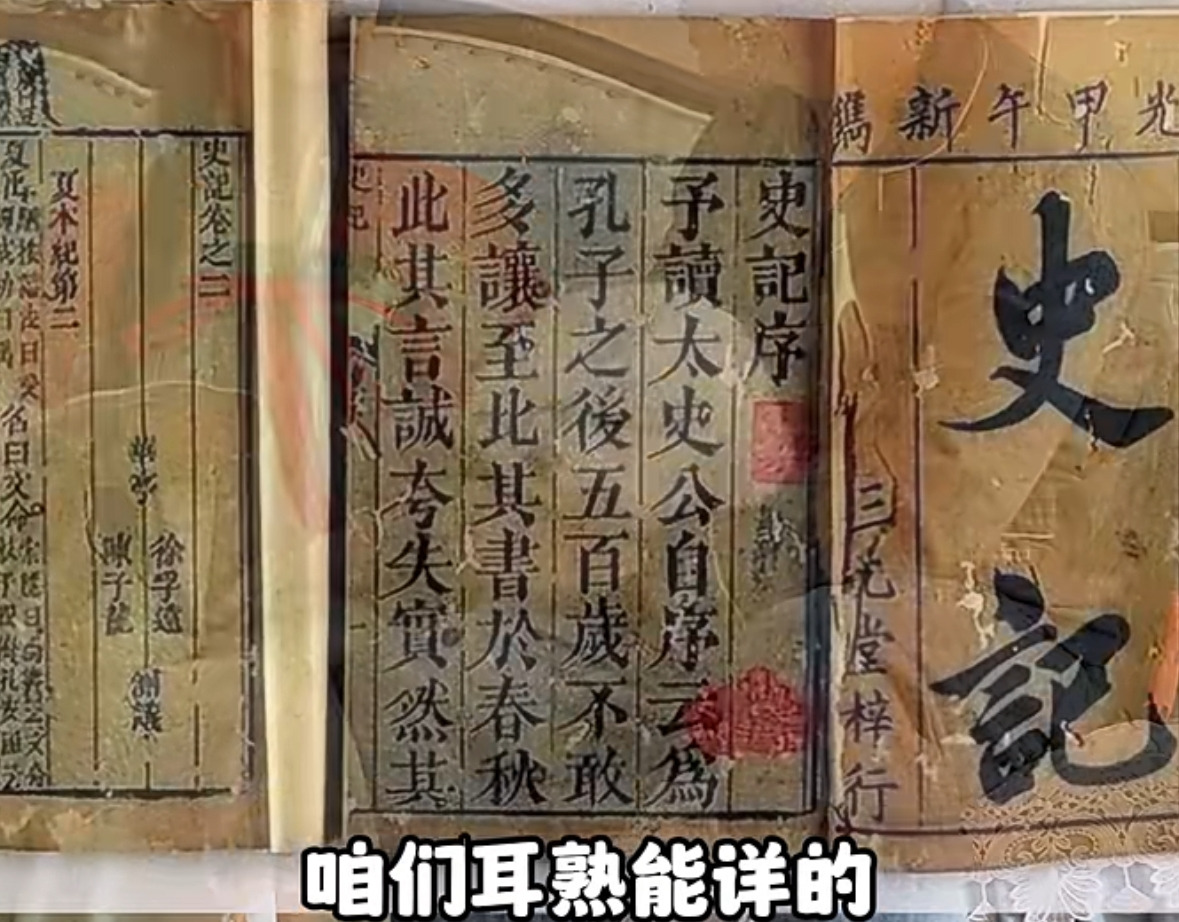 光甲午新鐫
史記
三元堂梓行
史記序
予讀太史公自序云為
孔子之後五百歲不敢
多讓至比其書於春秋
此其言誠夸失實然其
史記卷之二
華亭
徐孚遠
陳子龍
測議
夏本紀第二
名曰文命
咱们耳熟能详的